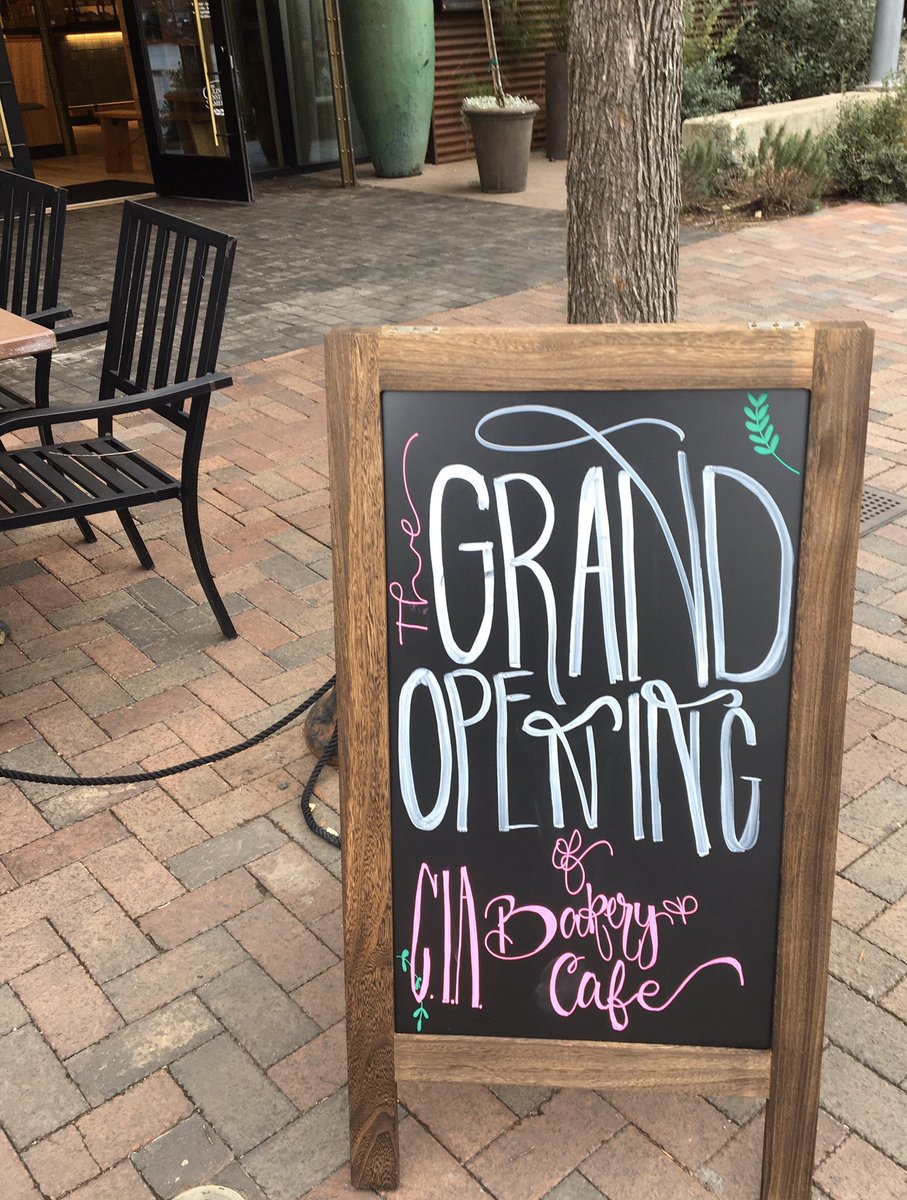 The
GRAND
OPENING
of
C.I.A. Bakery
Cafe